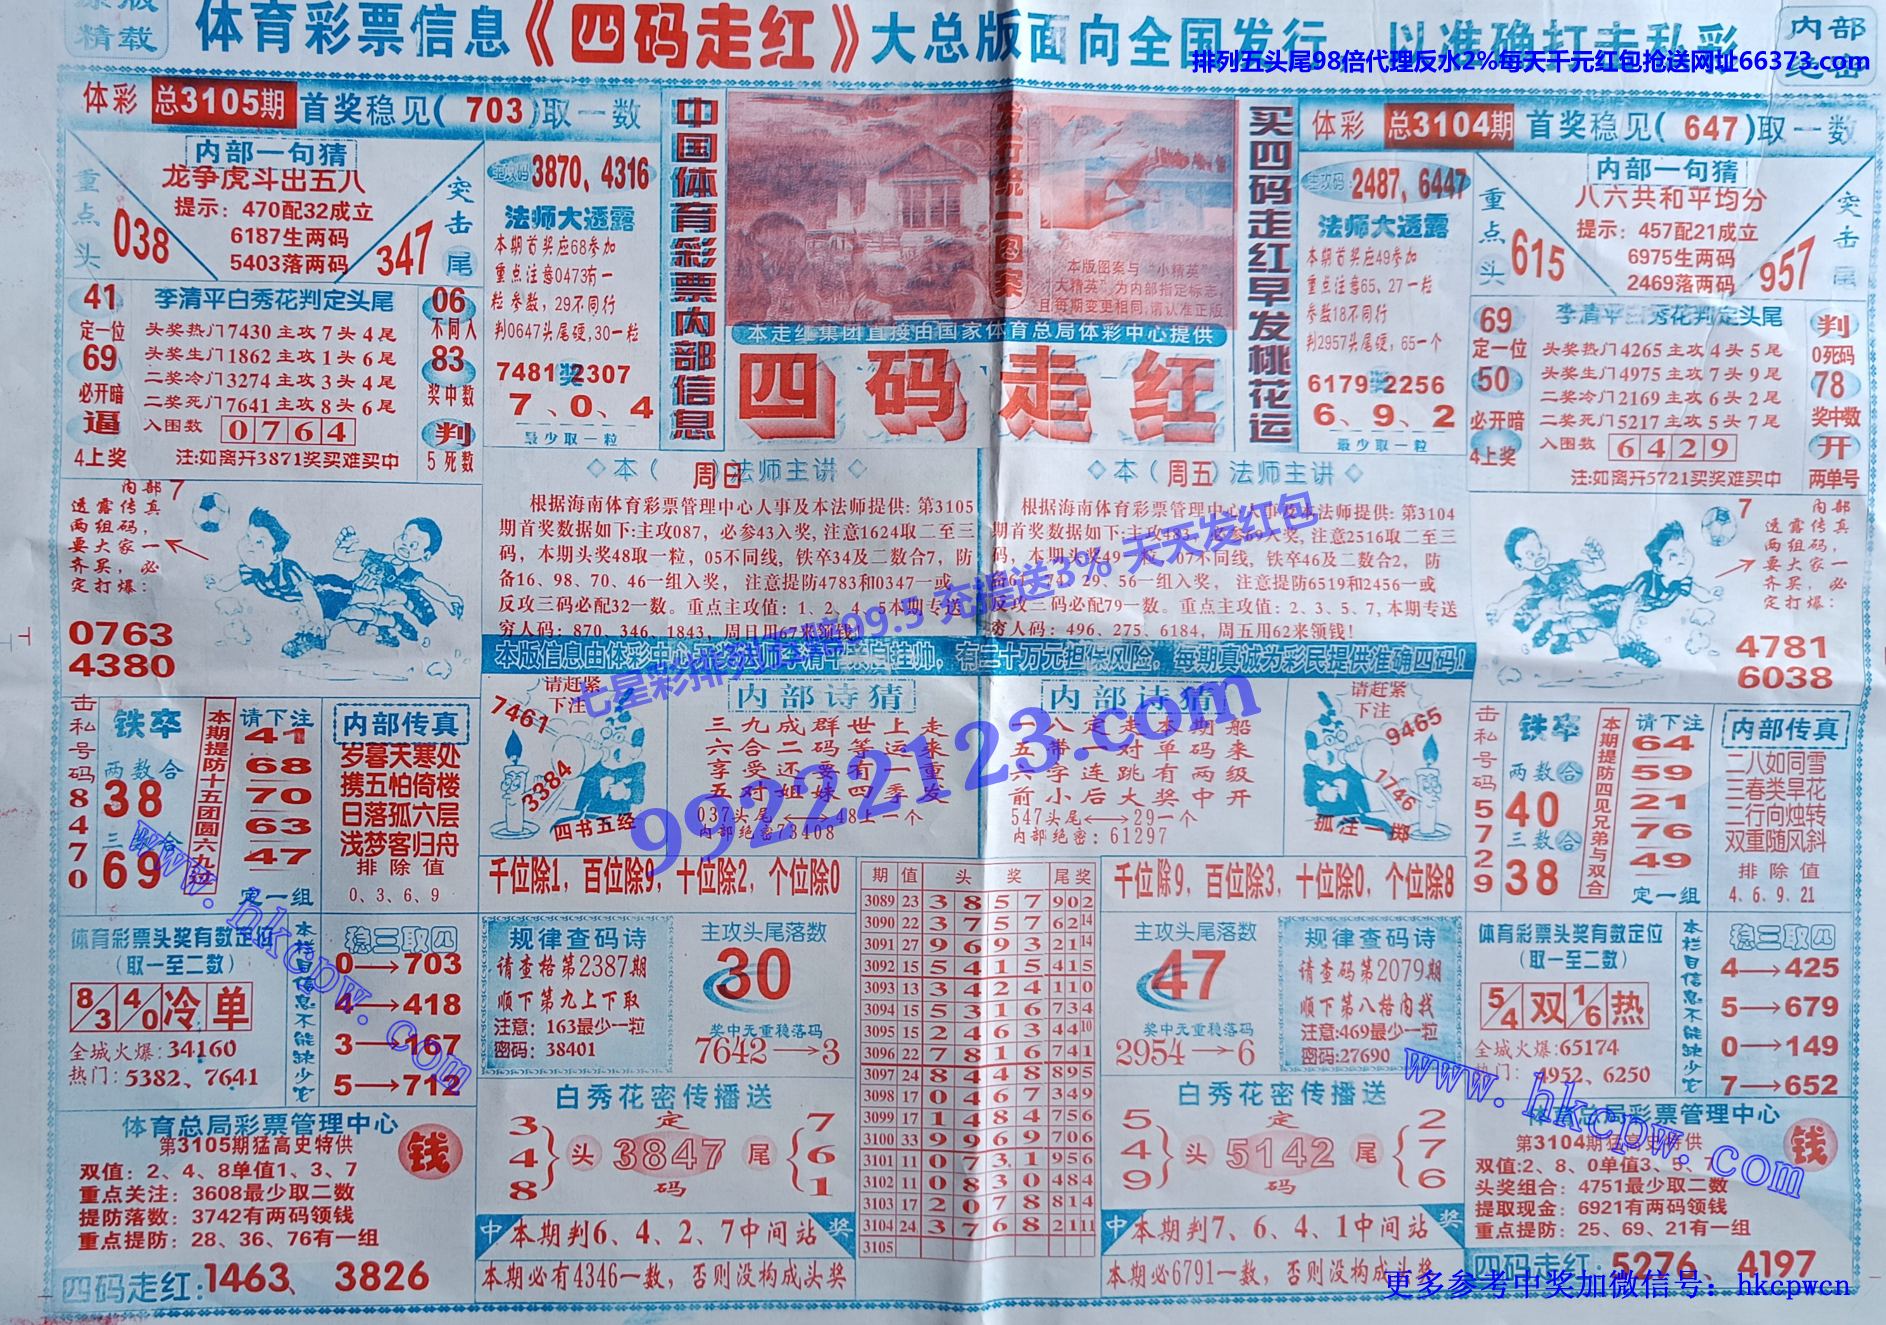 精载
体育彩票信息《四码走红》大总版面向全国发行
以准确打击私彩
内部
排列五头尾98倍代理反水2%每天千元红包抢送网址66373.com
体彩 总3105期 首奖稳见(703)取一数
内部一句猜
龙争虎斗出五八
提示：470配32成立
6187生两码
5403落两码
重点头
038
突击尾
347
主攻码 3870、4316
法师大透露
本期首奖应68参加
重点注意0473有一
粒参数，29不同行
判0647头尾硬,30一粒
7481奖2307
7、0、4
最少取一粒
41
定一位
69
必开暗
逼
4上奖
李清平白秀花判定头尾
头奖热门7430主攻7头4尾
头奖生门1862主攻1头6尾
二奖冷门3274主攻3头4尾
二奖死门7641主攻8头6尾
入围数 0764
注:如离开3871奖买难买中
06
不同入
83
奖中数
判
5死数
中国体育彩票内部信息
发行统一图案
本版图案与“小精英”
大精英”为内部指定标志
且每期变更相同,请认准正版
本走红集团直接由国家体育总局体彩中心提供
四码走红
买四码走红早发桃花运
体彩 总3104期 首奖稳见(647)取一数
主攻码 2487、6447
法师大透露
本期首奖应49参加
重点注意65、27一粒
参数18不同行
判2957头尾硬，65一个
6179奖2256
6、9、2
最少取一粒
内部一句猜
八六共和平均分
提示：457配21成立
6975生两码
2469落两码
重点头
615
突击尾
957
69
定一位
50
必开暗
4上奖
李清平白秀花判定头尾
头奖热门4265主攻4头5尾
头奖生门4975主攻7头9尾
二奖冷门2169主攻6头2尾
二奖死门5217主攻5头7尾
入围数 6429
注:如离开5721买奖难买中
判
0死码
78
奖中数
开
两单号
内部7
透露传真
两组码，
要大家一
齐买，必
定打爆：
0763
4380
◇本(周日)法师主讲◇
根据海南体育彩票管理中心人事及本法师提供: 第3105
期首奖数据如下:主攻087，必参43入奖, 注意1624取二至三
码，本期头奖48取一粒，05不同线, 铁卒34及二数合7, 防
备16、98、70、46一组入奖， 注意提防4783和0347一或
反攻三码必配32一数。重点主攻值：1、2、4、5本期专送
穷人码：870、346、1843，周日用67来领钱！
◇本(周五)法师主讲◇
根据海南体育彩票管理中心人事及本法师提供: 第3104
期首奖数据如下:主攻483，必参69入奖, 注意2516取二至三
码，本期头奖49一粒，07不同线, 铁卒46及二数合2，防
备67、74、29、56一组入奖， 注意提防6519和2456一或
反攻三码必配79一数。重点主攻值：2、3、5、7, 本期专送
穷人码：496、275、6184，周五用62来领钱！
7
内部
透露传真
两组码，
要大家一
齐买，必
定打爆：
4781
6038
99.5 充提送3% 天天发红包
本版信息由体彩中心李清平亲自挂帅，有二十万元担保风险，每期真诚为彩民提供准确四码！
击私号码
8
4
7
0
铁卒
两数合
38
三数合
69
本期提防十五团圆六九过
请下注
41
68
70
63
47
定一组
内部传真
岁暮天寒处
携五怕倚楼
日落孤六层
浅梦客归舟
排除值
0、3、6、9
请赶紧下注
7461
3384
四书五经
内部诗猜
三九成群世上走
六合二码等运来
享受还要有一重
五对姐妹四季发
037头尾⟷48上一个
内部绝密73408
内部诗猜
一八定走本期船
五带一对单码来
六字连跳有两级
前小后大奖中开
547头尾⟷29一个
内部绝密：61297
请赶紧下注
9465
1746
孤注一掷
击私号码
5
7
2
9
铁卒
两数合
40
三数合
38
本期提防四见兄弟与双合
请下注
64
59
21
76
49
定一组
内部传真
二八如同雪
三春类早花
二行向烛转
双重随风斜
排除值
4、6、9、21
99222123.com
千位除1，百位除9，十位除2，个位除0
千位除9，百位除3，十位除0，个位除8
期 值 头奖 尾奖
3089 23 3857 902
3090 22 3757 6214
3091 27 9693 2114
3092 15 5415 415
3093 13 3424 110
3094 15 5316 734
3095 15 2463 4410
3096 22 7816 741
3097 24 8448 895
3098 17 0467 349
3099 17 1484 756
3100 33 9969 706
3101 11 0731 956
3102 11 0830 484
3103 17 2078 814
3104 24 3768 2111
3105
体育彩票头奖有数定位
(取一至二数)
8/3 4/0 冷 单
全城火爆: 34160
热门: 5382、7641
本栏目信息不能缺少它
稳三取四
0→703
4→418
3→167
5→712
规律查码诗
请查格第2387期
顺下第九上下取
注意：163最少一粒
密码：38401
主攻头尾落数
30
奖中无重稳落码
7642→3
主攻头尾落数
47
奖中无重稳落码
2954→6
规律查码诗
请查码第2079期
顺下第八格内找
注意:469最少一粒
密码:27690
体育彩票头奖有数定位
(取一至二数)
5/4 双 1/6 热
全城火爆:65174
热门：4952、6250
本栏目信息不能缺少它
稳三取四
4→425
5→679
0→149
7→652
www.hkcpw.com
www.hkcpw.com
体育总局彩票管理中心
第3105期猛高史特供
钱
双值: 2、4、8单值1、3、7
重点关注：3608最少取二数
提防落数：3742有两码领钱
重点提防：28、36、76有一组
四码走红:1463、3826
白秀花密传播送
3
4
8
头
定
3847
码
尾
7
6
1
中 本期判6、4、2、7中间站 奖
本期必有4346一数，否则没构成头奖
白秀花密传播送
5
4
9
头
定
5142
码
尾
2
7
6
中 本期判7、6、4、1中间站 奖
本期必6791一数，否则没构成头奖
体育总局彩票管理中心
第3104期猛高史特供
钱
双值:2、8、0单值3、5、7
头奖组合：4751最少取二数
提取现金：6921有两码领钱
重点提防：25、69、21有一组
四码走红:5276、4197
更多参考中奖加微信号：hkcpwcn